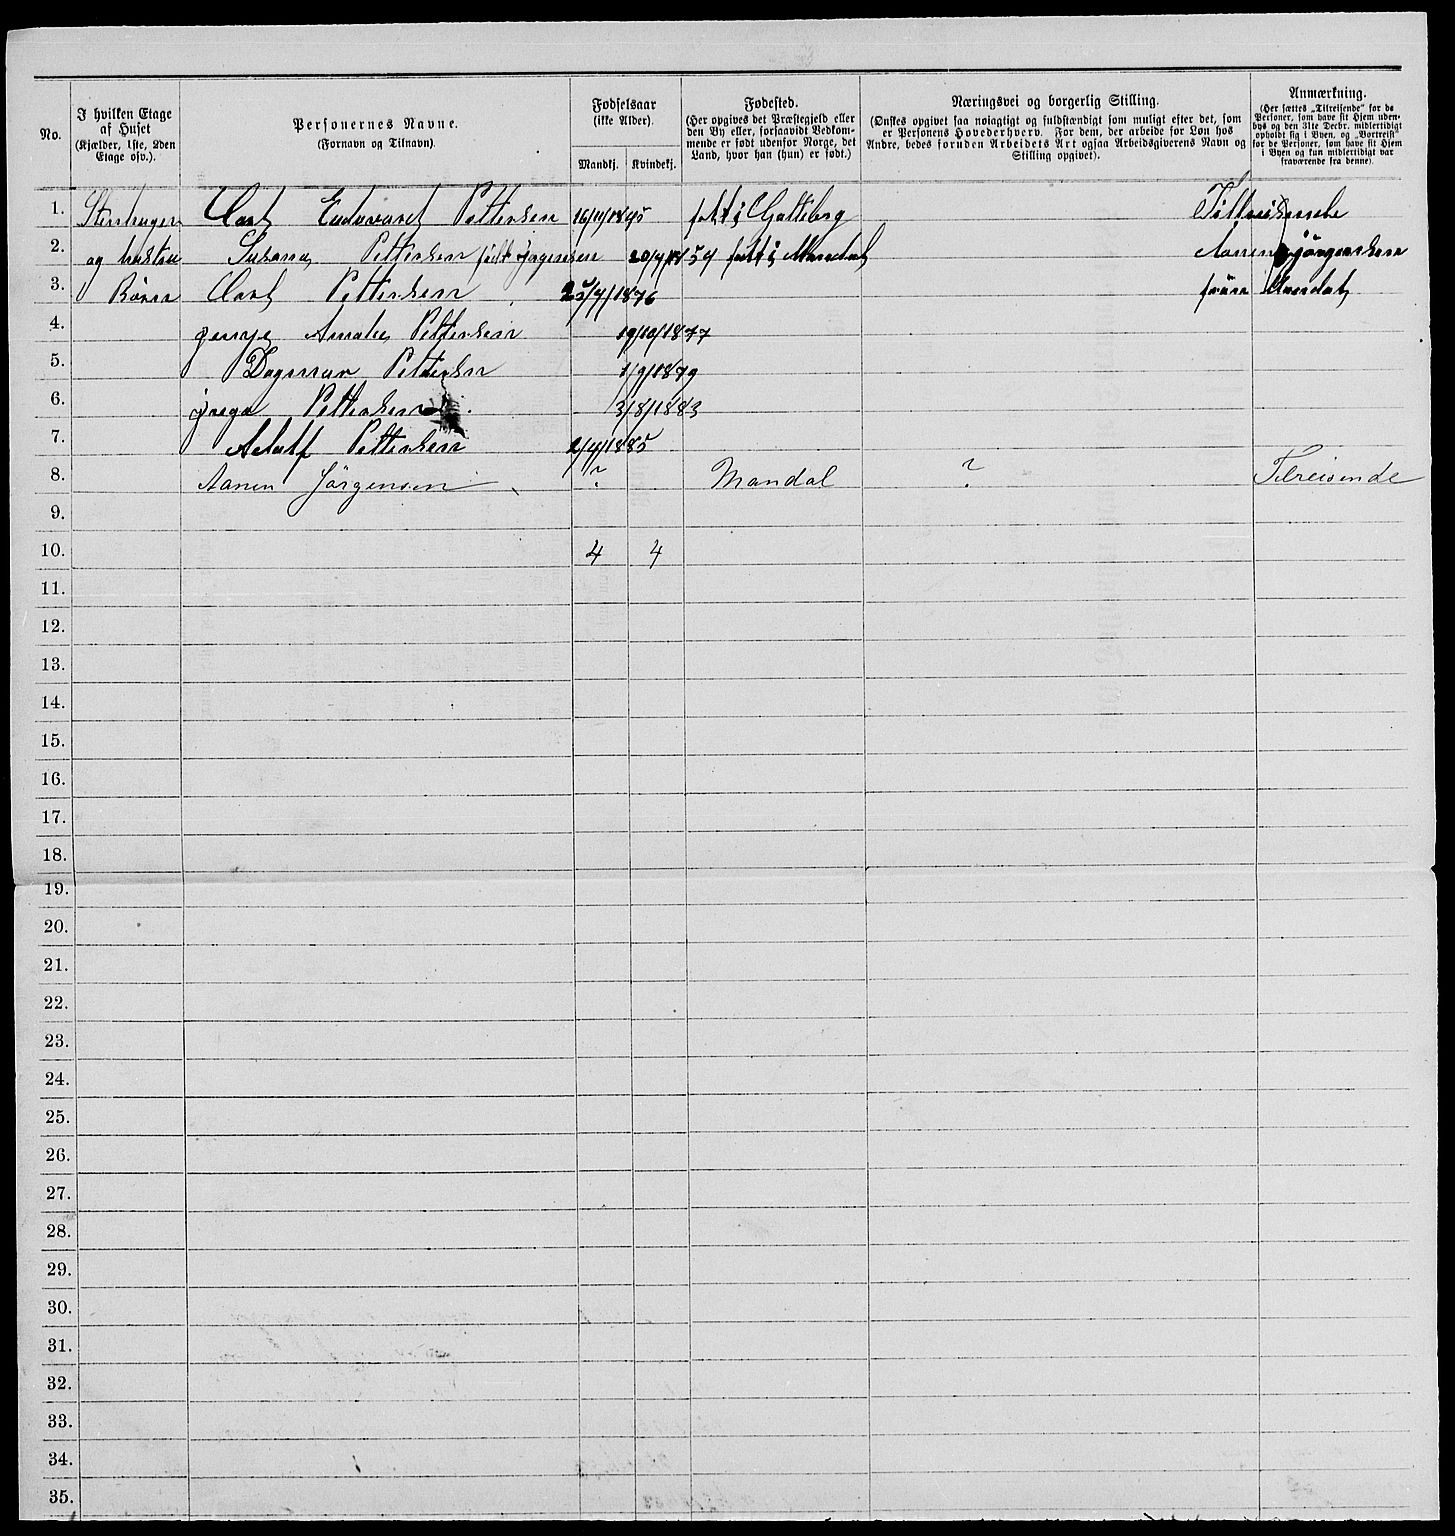 No.
I hvilken Etage
af Huset
(Kjælder, 1ste, 2den
Etage osv.).
Personernes Navne.
(Fornavn og Tilnavn).
Fødselsaar
(ikke Alder).
Mandkj. Kvindekj.
Fødested.
(Her opgives det Præstegjeld eller
den By eller, forsaavidt Vedkom-
mende er født udenfor Norge, det
Land, hvor han (hun) er født.)
Næringsvei og borgerlig Stilling.
(Ønskes opgivet saa nøiagtigt og fuldstændigt som muligt efter det, som
er Personens Hovederhverv. For dem, der arbeide for Løn hos
Andre, bedes foruden Arbeidets Art ogsaa Arbeidsgiverens Navn og
Stilling opgivet).
Anmærkning.
(Her sættes „Tilreisende“ for de
Personer, som have sit Hjem uden-
bys og den 31te Decbr. midlertidigt
opholdt sig i Byen, og „Bortreist“
for de Personer, som have sit Hjem
i Byen og kun midlertidigt var
fraværende fra denne).
1. Stenhuger Carl Eudvard Pettersen 16/11/1845 født i Gotteborg Tillreisende
2. og hustru Susanna Pettersen født Jørgensen 20/4/1854 født i Mandal Aanen Jørgensen
3. Børn Carl Pettersen 25/4/1876 fører Mandal
4. Jenny Amalie Pettersen 19/10/1877
5. Dagmar Pettersen 1/9/1879
6. Pettersen 3/8/1883
7. Adolf Pettersen 2/4/1885
8. Aanen Jørgensen ? Mandal ? Tilreisende
9.
10. 4 4
11.
12.
13.
14.
15.
16.
17.
18.
19.
20.
21.
22.
23.
24.
25.
26.
27.
28.
29.
30.
31.
32.
33.
34.
35.